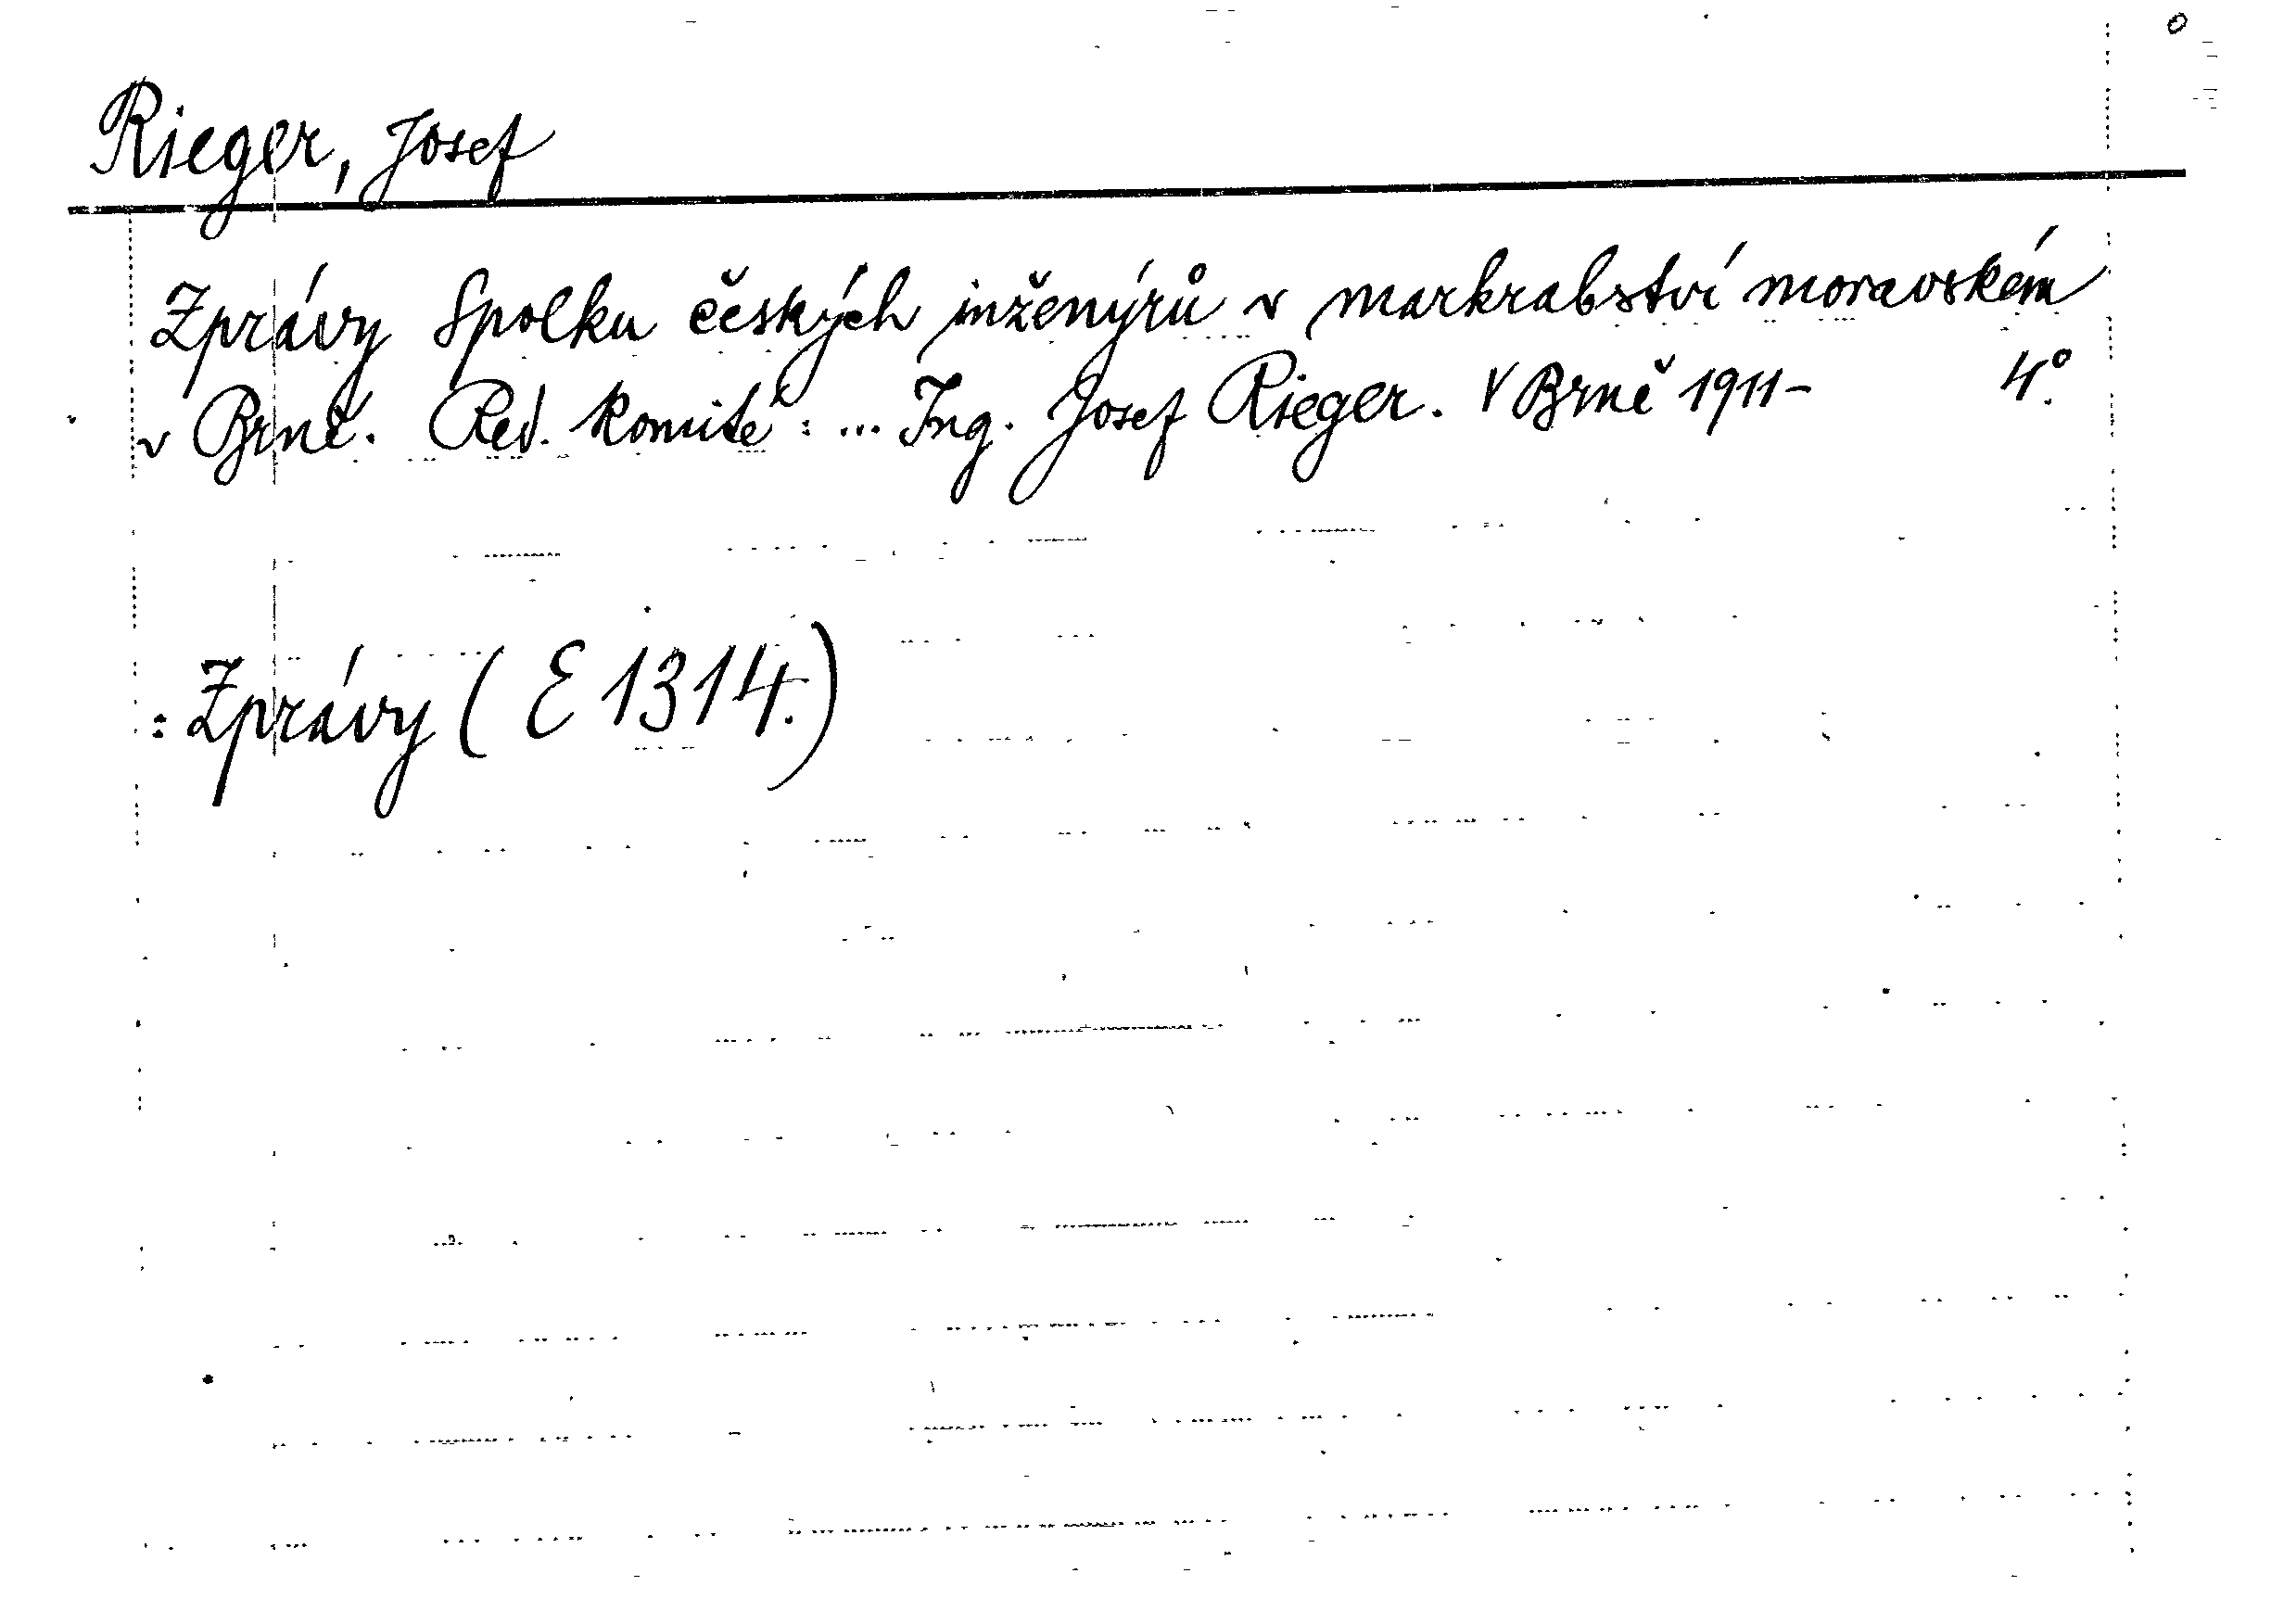 Rieger, Josef
Zprávy Spolku českých inženýrů v markrabství moravském
v Brně. Red. komité: ... Ing. Josef Rieger. V Brně 1911- 4°.
: Zprávy (E 1314.)